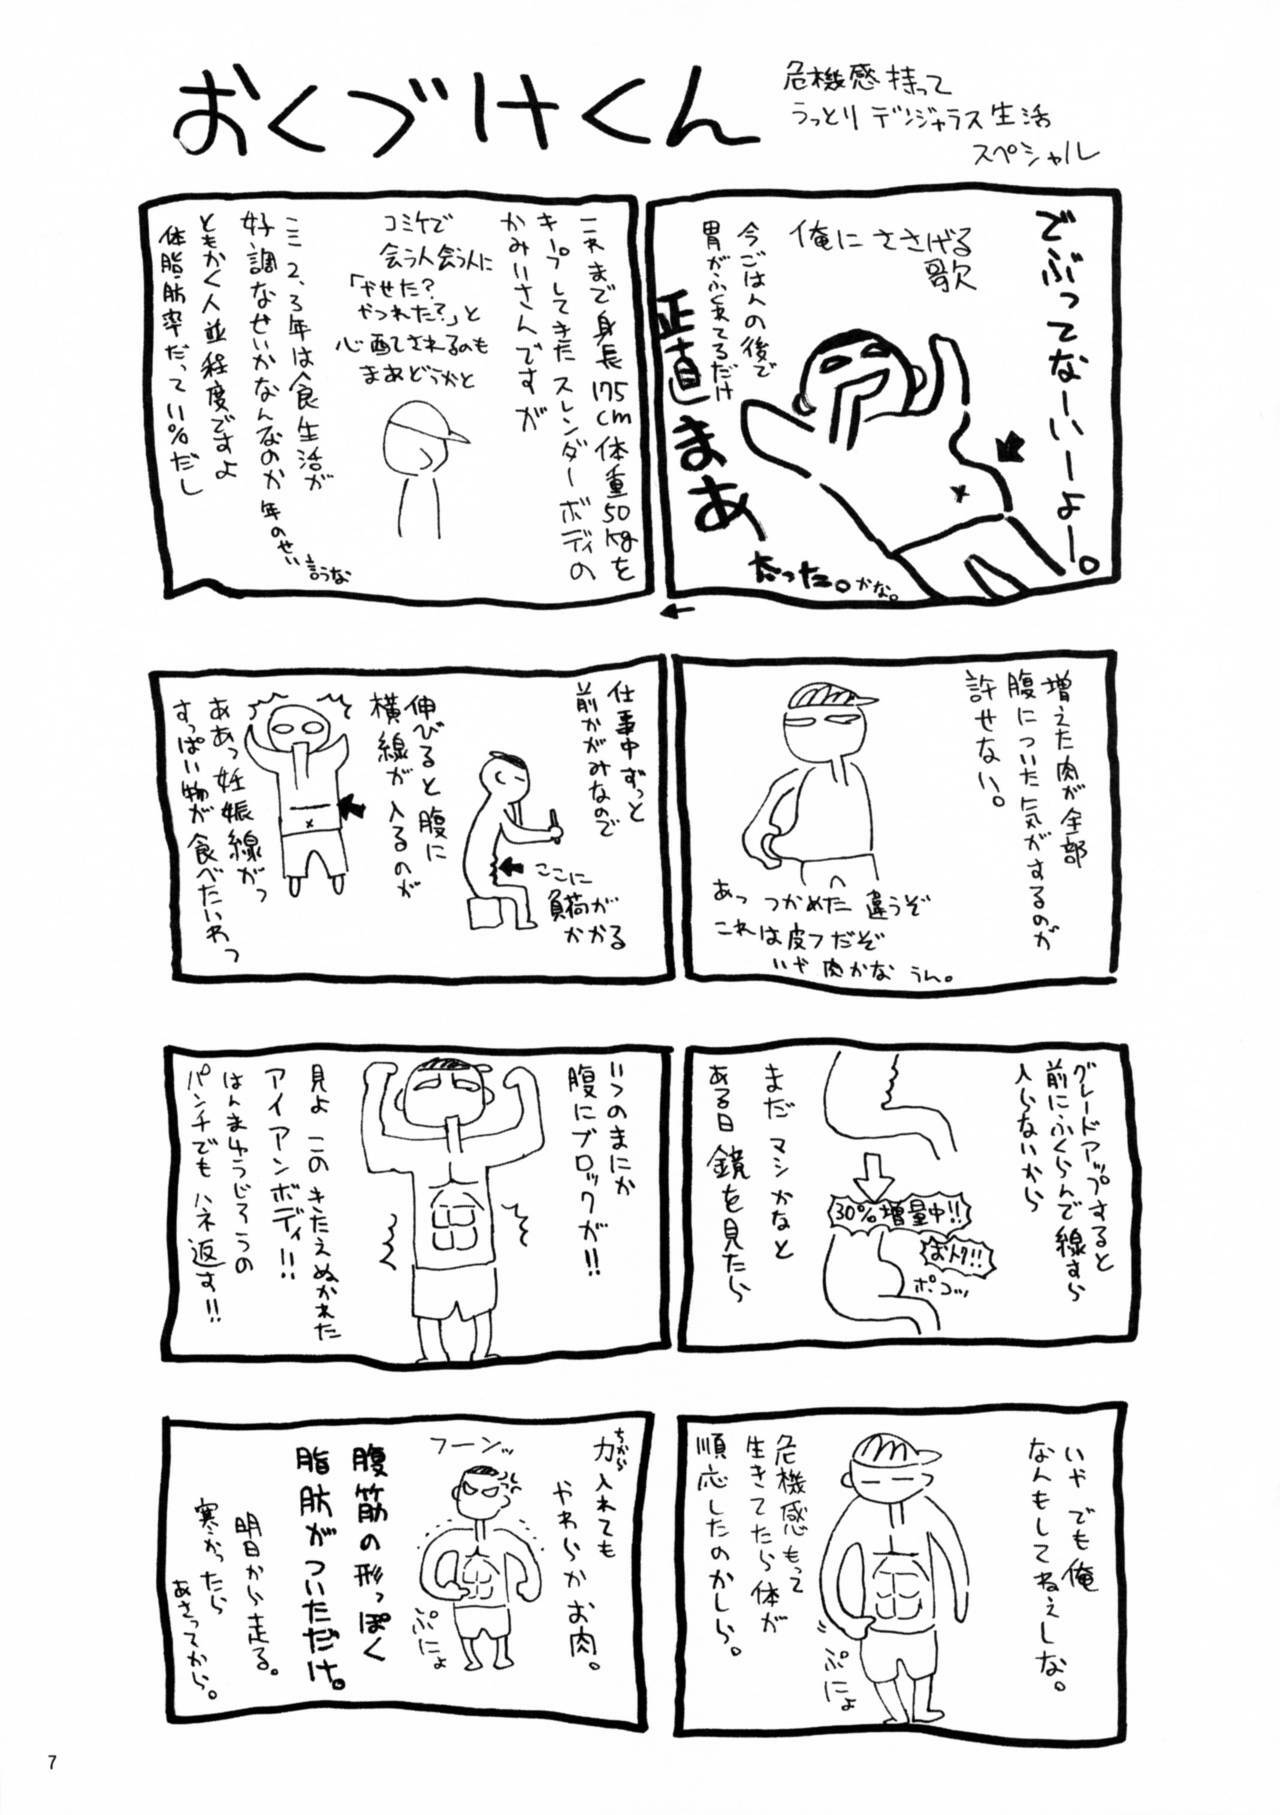 おくづけくん
危機感持って
うっとりデンジャラス生活
スペシャル
でぶってなーいーよー。
俺にささげる
歌
今ごはんの後で
胃がふくれてるだけ
正直まあ
太った。かな。
これまで身長175cm体重50kgを
キープしてきたスレンダーボディの
かみいさんですが
コミケで
会う人会う人に
「やせた?
やつれた?」と
心配されるのも
まあどうかと
ここ2、3年は食生活が
好調なせいかなんなのか年のせい
言うな
ともかく人並程度ですよ
体脂肪率だって11%だし
増えた肉が全部
腹についた気がするのが
許せない。
あっ つかめた 違うぞ
これは皮フだぞ
いや 肉かな うん。
仕事中ずっと
前かがみなので
ここに
負荷が
かかる
伸びると腹に
横線が入るのが
ああっ妊娠線がっ
すっぱい物が食べたいわっ
グレードアップすると
前にふくらんで線すら
入らないから
30%増量中!!
おトク!!
ポコッ
まだマシかなと
ある日鏡を見たら
いつのまにか
腹にブロックが!!
見よ このきたえぬかれた
アイアンボディ!!
はんまゆうじろうの
パンチでもハネ返す!!
いや でも俺
なんもしてねえしな。
ぷにょ
危機感もって
生きてたら体が
順応したのかしら。
力入れても
ちから
やわらかお肉。
フーンッ
ぷにょ
腹筋の形っぽく
脂肪がついただけ。
明日から走る。
寒かったら
あさってから。
7